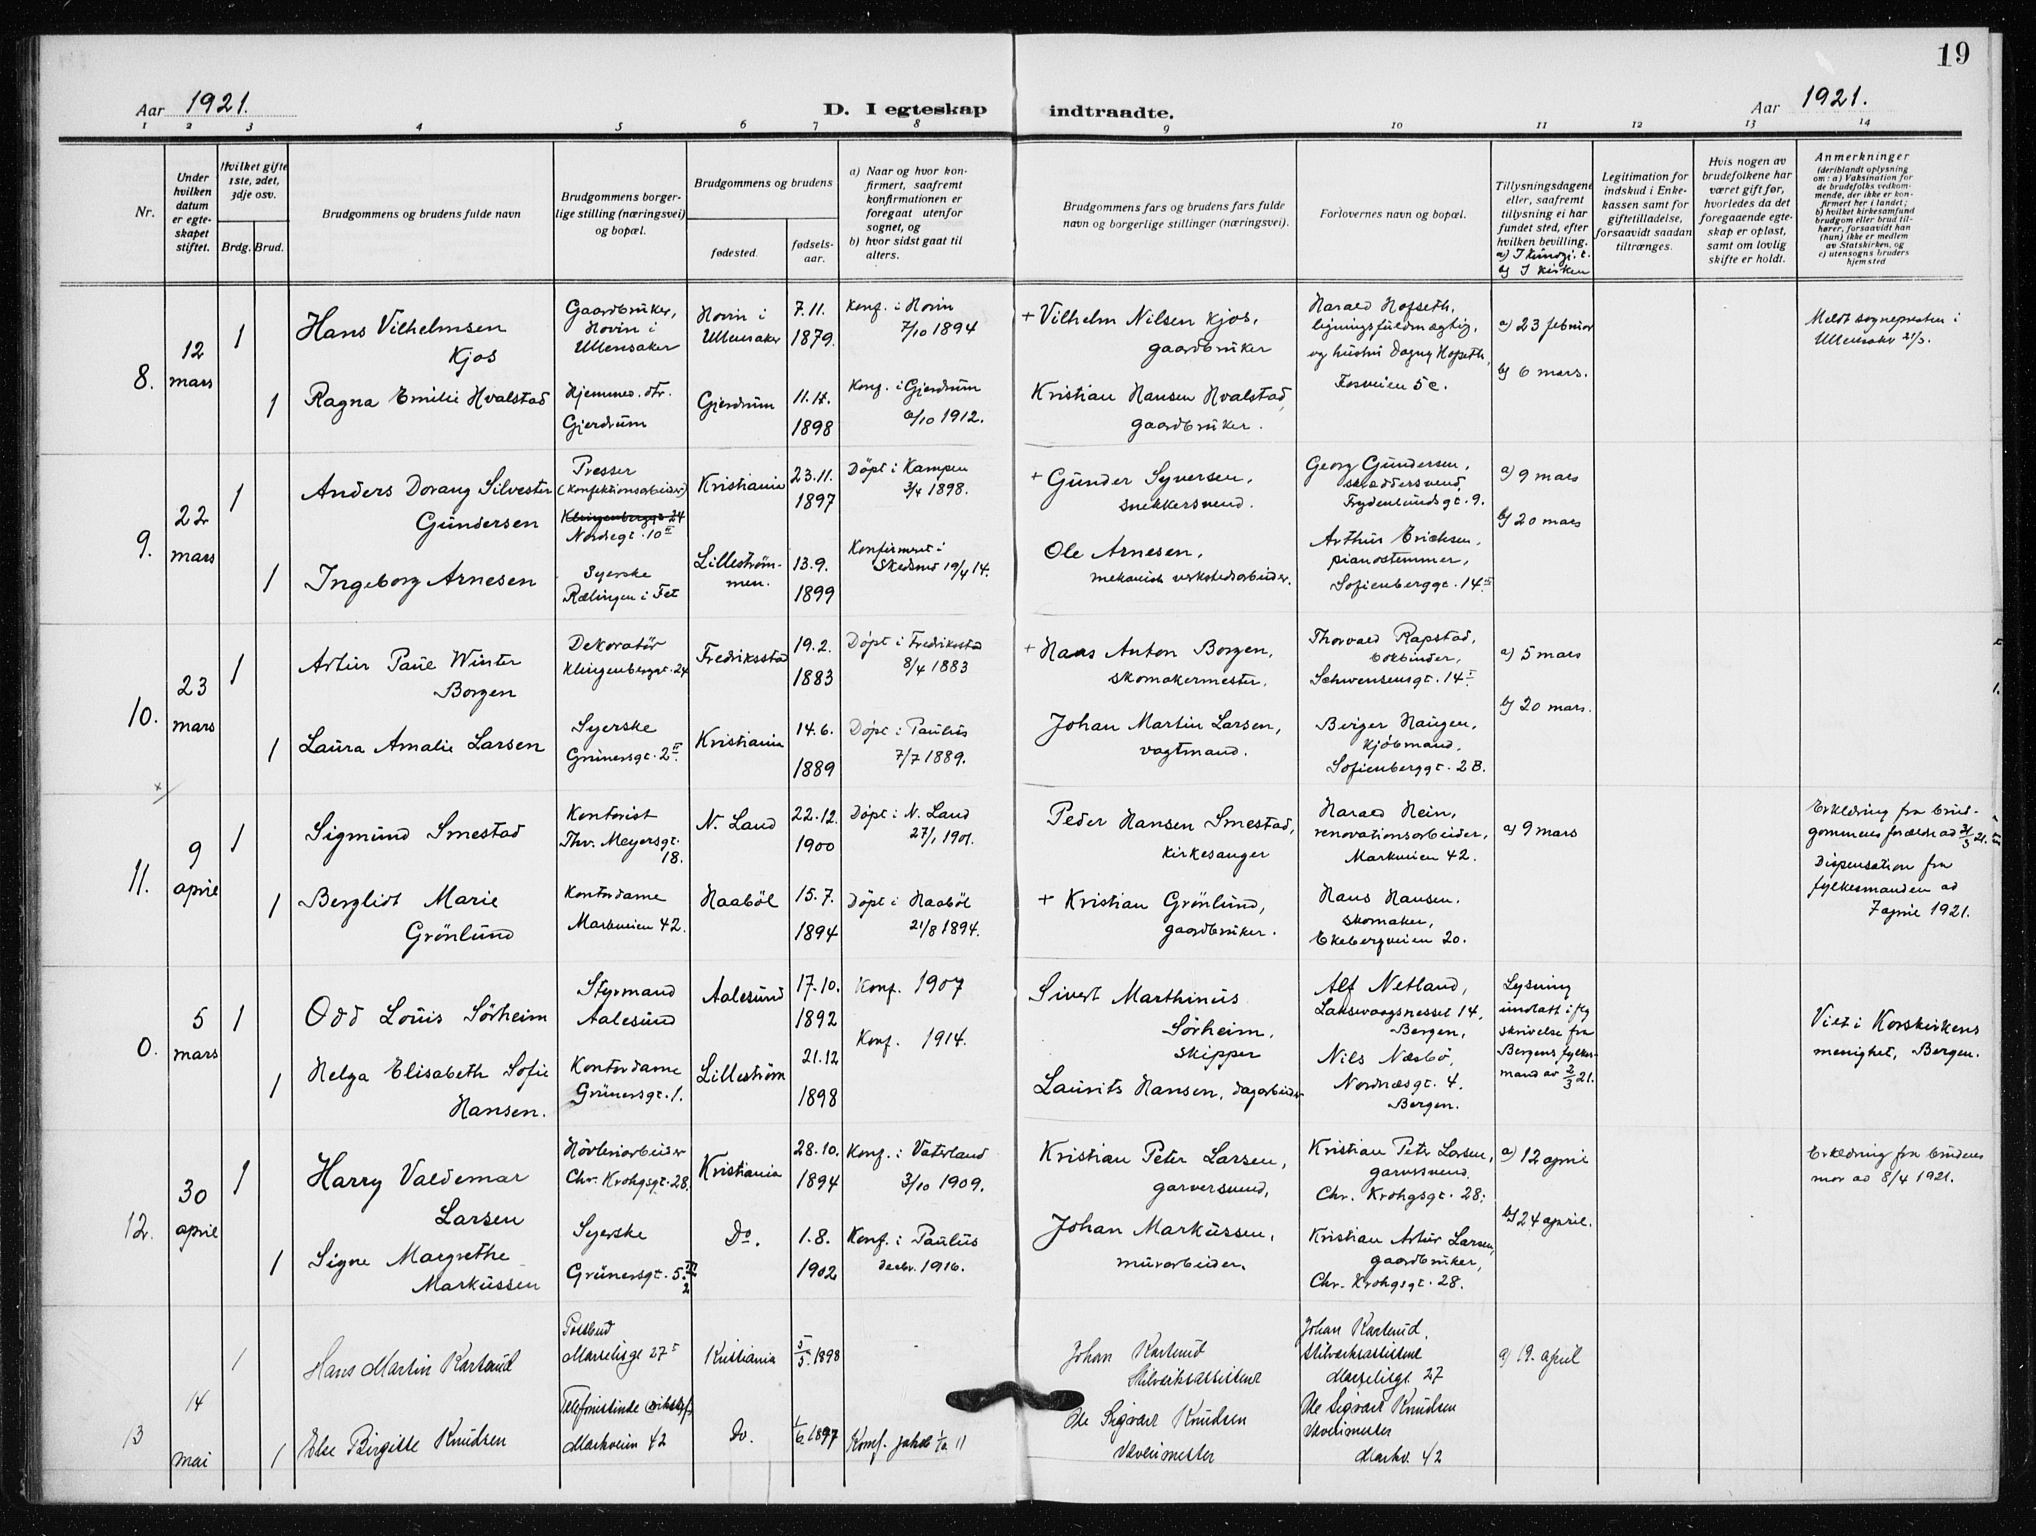 19
Aar 1921.
D. I egteskap indtraadte.
Aar 1921.
1 2 3 4 5 6 7 8 9 10 11 12 13 14
Nr.
Under
hvilken
datum
er egte-
skapet
stiftet.
Hvilket gifte
1ste, 2det,
3dje osv.
Brdg. Brud.
Brudgommens og brudens fulde navn
Brudgommens borger-
lige stilling (næringsvei)
og bopæl.
Brudgommens og brudens
fødested.
fødsels-
aar.
a) Naar og hvor kon-
firmert, saafremt
konfirmationen er
foregaat utenfor
sognet, og
b) hvor sidst gaat til
alters.
Brudgommens fars og brudens fars fulde
navn og borgerlige stillinger (næringsvei).
Forlovernes navn og bopæl.
Tillysningsdagene
eller, saafremt
tillysning ei har
fundet sted, efter
hvilken bevilling.
b) I kirken
Legitimation for
indskud i Enke-
kassen samt for
giftetilladelse,
forsaavidt saadan
tiltrænges.
Hvis nogen av
brudefolkene har
været gift før,
hvorledes da det
foregaaende egte-
skap er opløst,
samt om lovlig
skifte er holdt.
Anmerkninger
(deriblandt oplysning
om: a) Vaksination for
de brudefolks vedkom-
mende, der ikke er kon-
firmert her i landet;
b) hvilket kirkesamfund
brudgom eller brud til-
hører, forsaavidt han
(hun) ikke er medlem
av Statskirken, og
c) utensogns bruders
hjemsted
8.
12
mars
1
Hans Vilhelmsen
Kjos
Gaardbruker,
Hovin i
Ullensaker
Hovin i
Ullensaker
7.11.
1879.
Konf. i Hovin
7/10 1894
+ Vilhelm Nilsen Kjos,
gaardbruker
Harald Hofseth,
ligningsfuldmægtig,
og hustru Dagny Hofseth,
Fossveien 5c.
a) 23 februar
b) 6 mars.
Meldt sognepresten i
Ullensaker 21/3.
1
Ragna Emilie Hvalstad
Hjemmev. dtr.
Gjerdrum
Gjerdrum
11.11.
1898
Konf. i Gjerdrum
6/10 1912.
Kristian Hansen Hvalstad,
gaardbruker.
9.
22
mars
1
Anders Dorang Silvester
Gundersen
Presser
(Konfektionsarbeider)
Klingenberggt 24
Nordregt. 10 II
Kristiania
23.11.
1897
Døpt i Kampen
3/4 1898.
+ Gunder Syversen,
snekkersvend.
Georg Gundersen,
skræddersvend,
Frydenlundsgt. 9.
a) 9 mars
b) 20 mars
1
Ingeborg Arnesen
Syerske
Rælingen i Fet
Lillestrøm-
men.
13.9.
1899
Konfirmert i
Skedsmo 19/4 14.
Ole Arnesen,
mekanisk verkstedsarbeider.
Arthur Erichsen,
pianostemmer,
Sofienberggt. 14 II
10.
23
mars
1
Artur Paul Winter
Borgen
Dekoratør
Klingenberggt. 24
Fredriksstad
19.2.
1883
Døpt i Fredriksstad
8/4 1883
+ Hans Anton Borgen,
skomakermester.
Thorvald Rapstad,
bokbinder,
Schwensensgt. 14 I
a) 5 mars
b) 20 mars.
1
Laura Amalie Larsen
Syerske
Grünersgt. 2 II
Kristiania
14.6.
1889
Døpt i Paulus
7/7 1889.
Johan Martin Larsen,
vagtmand.
Berger Haugen,
kjøbmand,
Sofienberggt. 2B.
11.
9
april
1
Sigmund Smestad
Kontorist
Thv. Meyersgt.
18.
N. Land
22.12.
1900
Døpt i N. Land
27/1 1901.
Peder Hansen Smestad,
kirkesanger
Harald Hein,
renovationsarbeider,
Markveien 42.
a) 9 mars
Erklæring fra brud-
gommens forældre ad 31/3 21.
Dispensation fra
fylkesmanden ad
7 april 1921.
1
Bergliot Marie
Grönlund
Kontordame
Markveien 42.
Haaböl
15.7.
1894
Døpt i Haaböl
21/8 1894.
+ Kristian Grönlund,
gaardbruker.
Hans Hansen,
skomaker,
Ekebergveien 20.
0.
5
mars
1
Odd Louis Sørheim
Styrmand
Aalesund
Aalesund
17.10.
1892
Konf. 1907
Sivert Marthinus
Sørheim,
skipper
Alf Netland,
Laksevaagsnesset 14,
Bergen,
Lysning
undlatt iflg
skrivelse fra
Bergens fylkes-
mand av 2/3 21.
Viet i Korskirkens
menighet, Bergen.
1
Helga Elisabeth Sofie
Hansen.
Kontordame
Grünersgt. 1.
Lillestrøm
21.12
1898
Konf. 1914.
Laurits Hansen, dagarbeider
Nils Næsbø,
Nordnæsgt. 4.
Bergen.
12.
30
april
1
Harry Valdemar
Larsen
Høvleriarbeider
Chr. Krohgsgt. 28.
Kristiania
28.10.
1894
Konf. i Vaterland
3/10 1909.
Kristian Peter Larsen,
garversvend,
Kristian Peter Larsen,
garversvend
Chr. Krohgsgt. 28.
a) 12 april
b) 24 april.
Erklæring fra brudens
mor ad 8/4 1921.
1
Signe Margrethe
Markussen
Syerske
Grünersgt. 5
Do.
1.8.
1902
Konf. i Paulus
decbr. 1916.
Johan Markussen,
murarbeider.
Kristian Artur Larsen,
gaardbruker,
Chr. Krohgsgt. 28.
13
14
mai
1
Hans Martin Karlund
Postbud
Marselisgt 27 I
Kristiania
5/5 1898
Johan Karlund
Johan Karlund,
Marselisgt 27
a) 19. april
1
Else Birgitte Knudsen
Telefonistinde
Markveien 42
Do.
1/6 1897
Konf. Jakob 1/10 11
Ole Sigvart Knudsen
Vævermester
Ole Sigvart Knudsen
Vævermester
Markv. 42